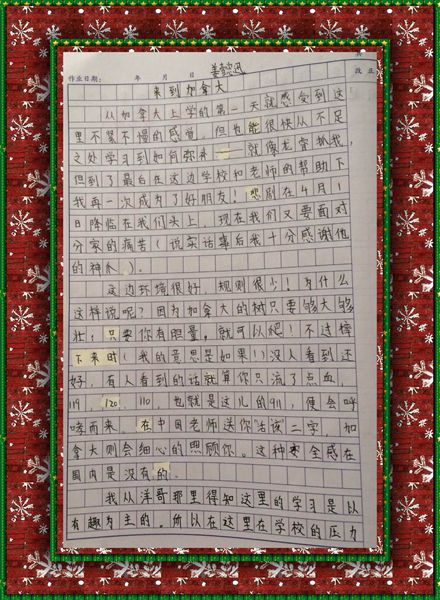 作业日期： 年 月 日
来到加拿大
从加拿大上学的第一天就感受到这
里不紧不慢的感觉，但也能很快从不足
之处学习到如何弥来——就像龙宫抓我，
但到了最后在这边学校和老师的帮助下
我再一次成为了好朋友！悲剧在4月1
日降临在我们头上，现在我们又要面对
分家的痛苦（说实话事后我十分感谢他
的神
这边环境很好，规则很少！为什么
这样说呢？因为加拿大的树只要够大够
壮，只要你有胆量，就可以爬！不过摔
下来时（我的意思是如果！）没人看到还
好，有人看到的话就算你只流了点血，
119、120、110 也就是这儿的911，便会呼
啸而来。在中国老师送你"活该"二字，加
拿大则会细心的照顾你。这种安全感在
国内是没有的。
我从洋哥那里得知这里的学习是以
有趣为主的。所以在这里在学校的压力